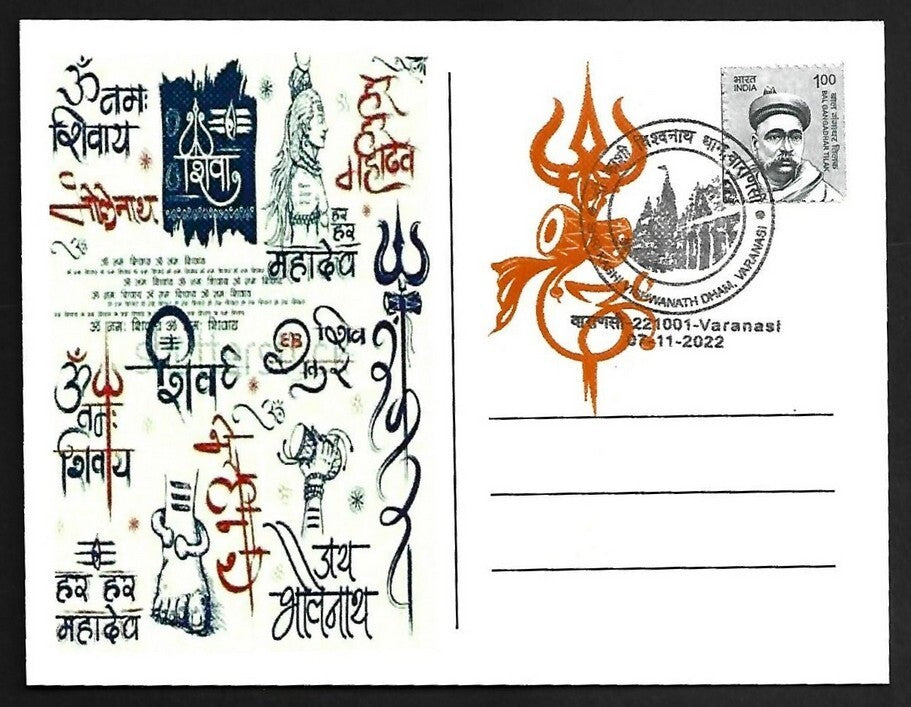 ॐ नमः
शिवाय
शिवा
हर
हर
महादेव
भोलेनाथ
हर
हर
महादेव
ॐ
ॐ नमः शिवाय ॐ नमः शिवाय
ॐ नमः शिवाय ॐ नमः शिवाय
ॐ नमः शिवाय ॐ नमः शिवाय
ॐ नमः शिवाय ॐ नमः शिवाय
शिव
ॐ
नमः
शिवाय
ॐ
महादेव
हर हर
महादेव
जय
भोलेनाथ
भारत
INDIA
1.00
बाल गंगाधर तिलक
BAL GANGADHAR TILAK
श्री काशी विश्वनाथ धाम, वाराणसी
KASHI VISHWANATH DHAM, VARANASI
वाराणसी-221001-Varanasi
07-11-2022